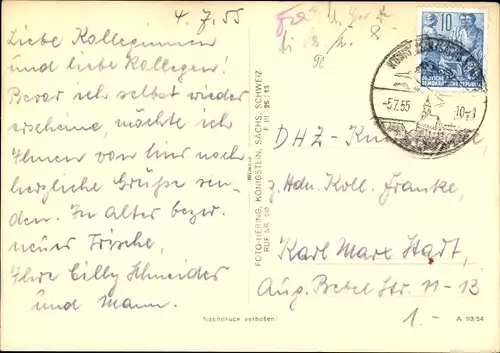 4.7.55
Liebe Kolleginnen
und liebe Kollegen!
Bevor ich selbst wieder
erscheine, möchte ich
Ihnen von hier noch
herzliche Grüße sen-
den. In alter bezw.
neuer Frische,
Ihre Cilly Schneider
und Mann.
FOTO-HERING, KÖNIGSTEIN, SÄCHS. SCHWEIZ
RUF NR.
10
DEUTSCHE
DEMOKRATISCHE REPUBLIK
-5.7.55
DHZ-
z. Hdn. Koll. Franke,
Karl Marx Stadt,
Aug. Bebel Str. 11-13
1.-
Nachdruck verboten!
A 113/54